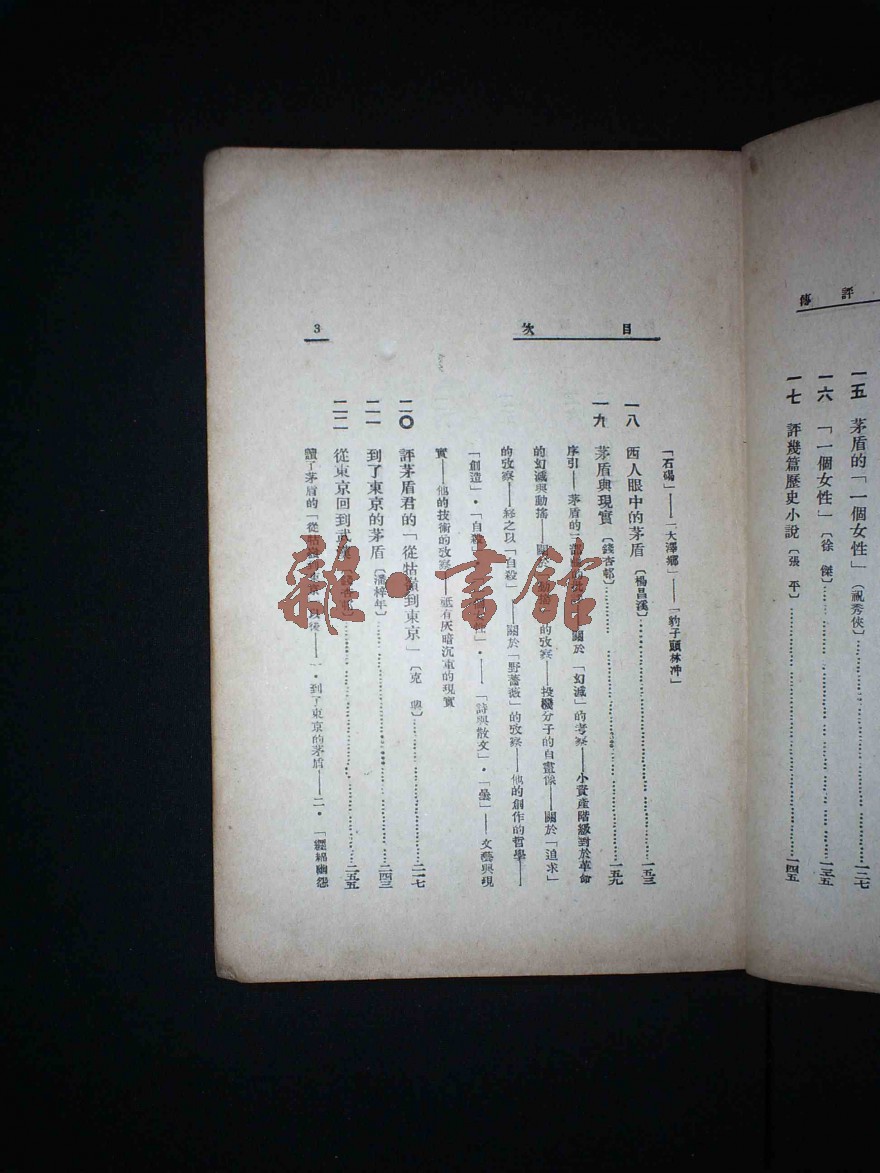 評傳
一五 茅盾的「一個女性」(祝秀俠)……一二七
一六 「一個女性」(徐傑)……一三五
一七 評幾篇歷史小說(張平)……一四五
目次
「石碣」——「大澤鄉」——「豹子頭林冲」
一八 西人眼中的茅盾(楊昌溪)……一五三
一九 茅盾與現實(錢杏邨)……一五九
序引——茅盾的三部曲的——關於「幻滅」的考察——小資產階級對於革命
的幻滅與動搖——關於的攷察——投機分子的自畫像——關於「追求」
的攷察——終之以「自殺」——關於「野薔薇」的攷察——他的創作的哲學——
「創造」·「自殺」·——「詩與散文」·「曇」——文藝與現
實——他的技術的攷察——祗有灰暗沉重的現實
二〇 評茅盾君的「從牯嶺到東京」(克興)……二一七
二一 到了東京的茅盾(潘梓年)……二四三
二二 從東京回到武漢(錢杏邨)……二五五
讀了茅盾的「從牯嶺到東京」以後——一·到了東京的茅盾——二·「纏綿幽怨
3
雜·書館